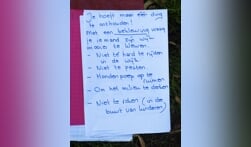 Je hoeft maar één ding
te onthouden!
Met een beklewraag vraag
je iemand zijn wijk
mooie te
- Niet te hard te rijden
in de wijk
- Niet te pesten
- Hondenpoep op te
ruimen
- Om het milieu te denken
- Niet te roken (in de
buurt van kinderen)